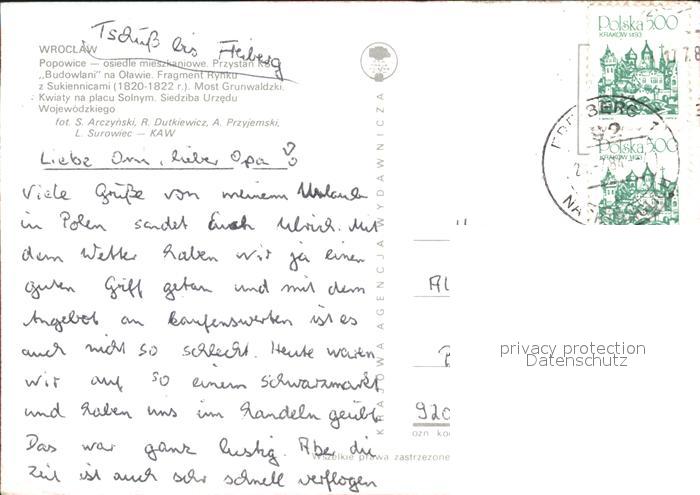 Tschüß bis Freiberg
WROCŁAW
Popowice — osiedle mieszkaniowe. Przystań KS
„Budowlani” na Oławie. Fragment Rynku
z Sukiennicami (1820-1822 r.). Most Grunwaldzki.
Kwiaty na placu Solnym. Siedziba Urzędu
Wojewódzkiego
fot. S. Arczyński, R. Dutkiewicz, A. Przyjemski,
L. Surowiec — KAW
Liebe Omi, lieber Opa!
Viele Grüße von meinem Urlaub
in Polen sendet Euch Ulrich. Mit
dem Wetter haben wir ja einen
guten Griff getan und mit dem
Angebot an kaufenswerten ist es
auch nicht so schlecht. Heute waren
wir auf so einem Schwarzmarkt
und haben uns im handeln geübt.
Das war ganz lustig. Aber die
Zeit ist auch sehr schnell verflogen
KRAJOWA AGENCJA WYDAWNICZA
Wszelkie prawa zastrzeżone
Polska 5.00
KRAKÓW 1493
Polska 5.00
KRAKÓW 1493
92
920
privacy protection
Datenschutz